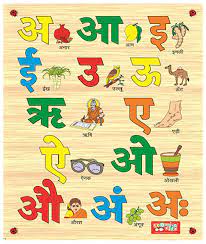 अ आ इ
अनार आम इमली
ई उ ऊ
उल्लू ऊँट
ऋ ए
ऋषि एड़ी
ऐ ओ
ऐनक ओखली
औ अं अः
औरत अंगूर